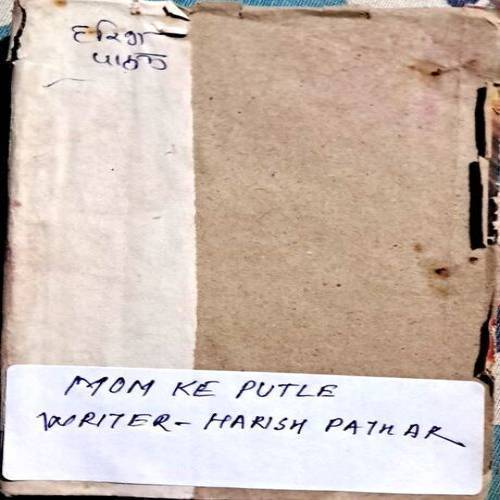 हरिश
पाठक
MOM KE PUTLE
WRITER- HARISH PATHAR